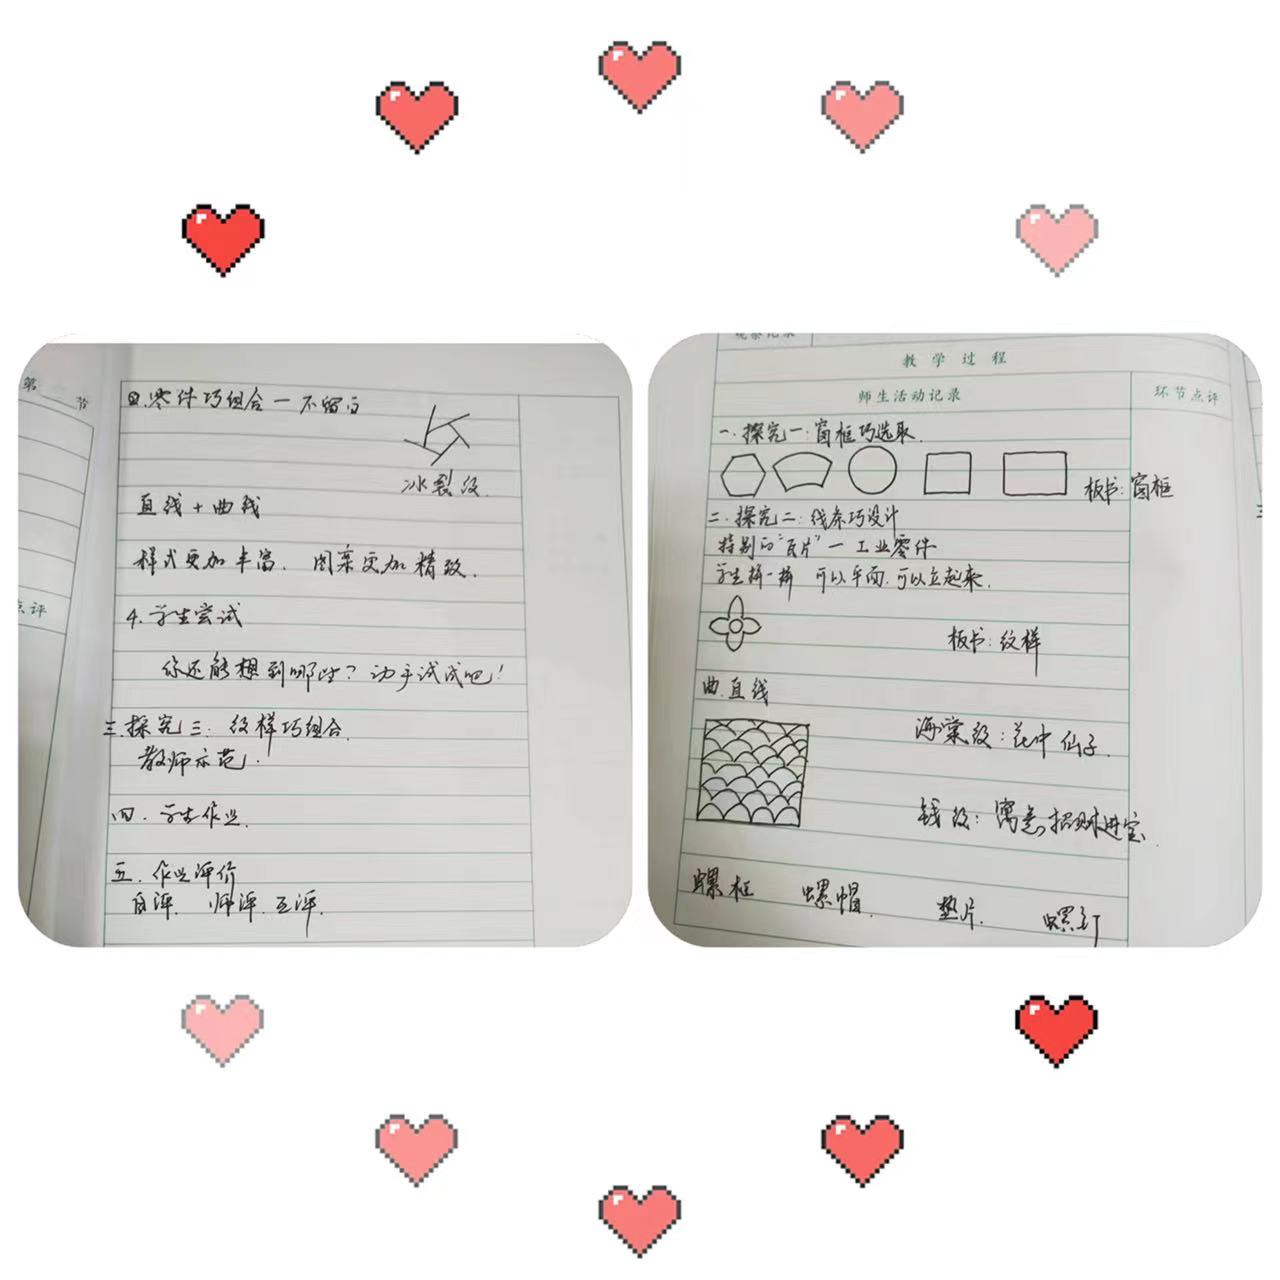 第 节
点评
四.零件巧组合一不留白
冰裂纹.
直线+曲线
样式更加丰富.图案更加精致.
4.学生尝试
你还能想到哪些?动手试试吧!
三.探究三:纹样巧组合.
教师示范.
四.学生作业.
五.作业评价
自评.师评.互评.
教学过程
师生活动记录
环节点评
一.探究一:窗框巧选取.
板书:窗框
二.探究二:线条巧设计
特别的"瓦片"一工业零件
学生拼一拼 可以平面.可以立起来.
板书:纹样
曲.直线
海棠纹:花中仙子.
钱纹:寓意招财进宝.
螺框 螺帽. 垫片. 螺钉